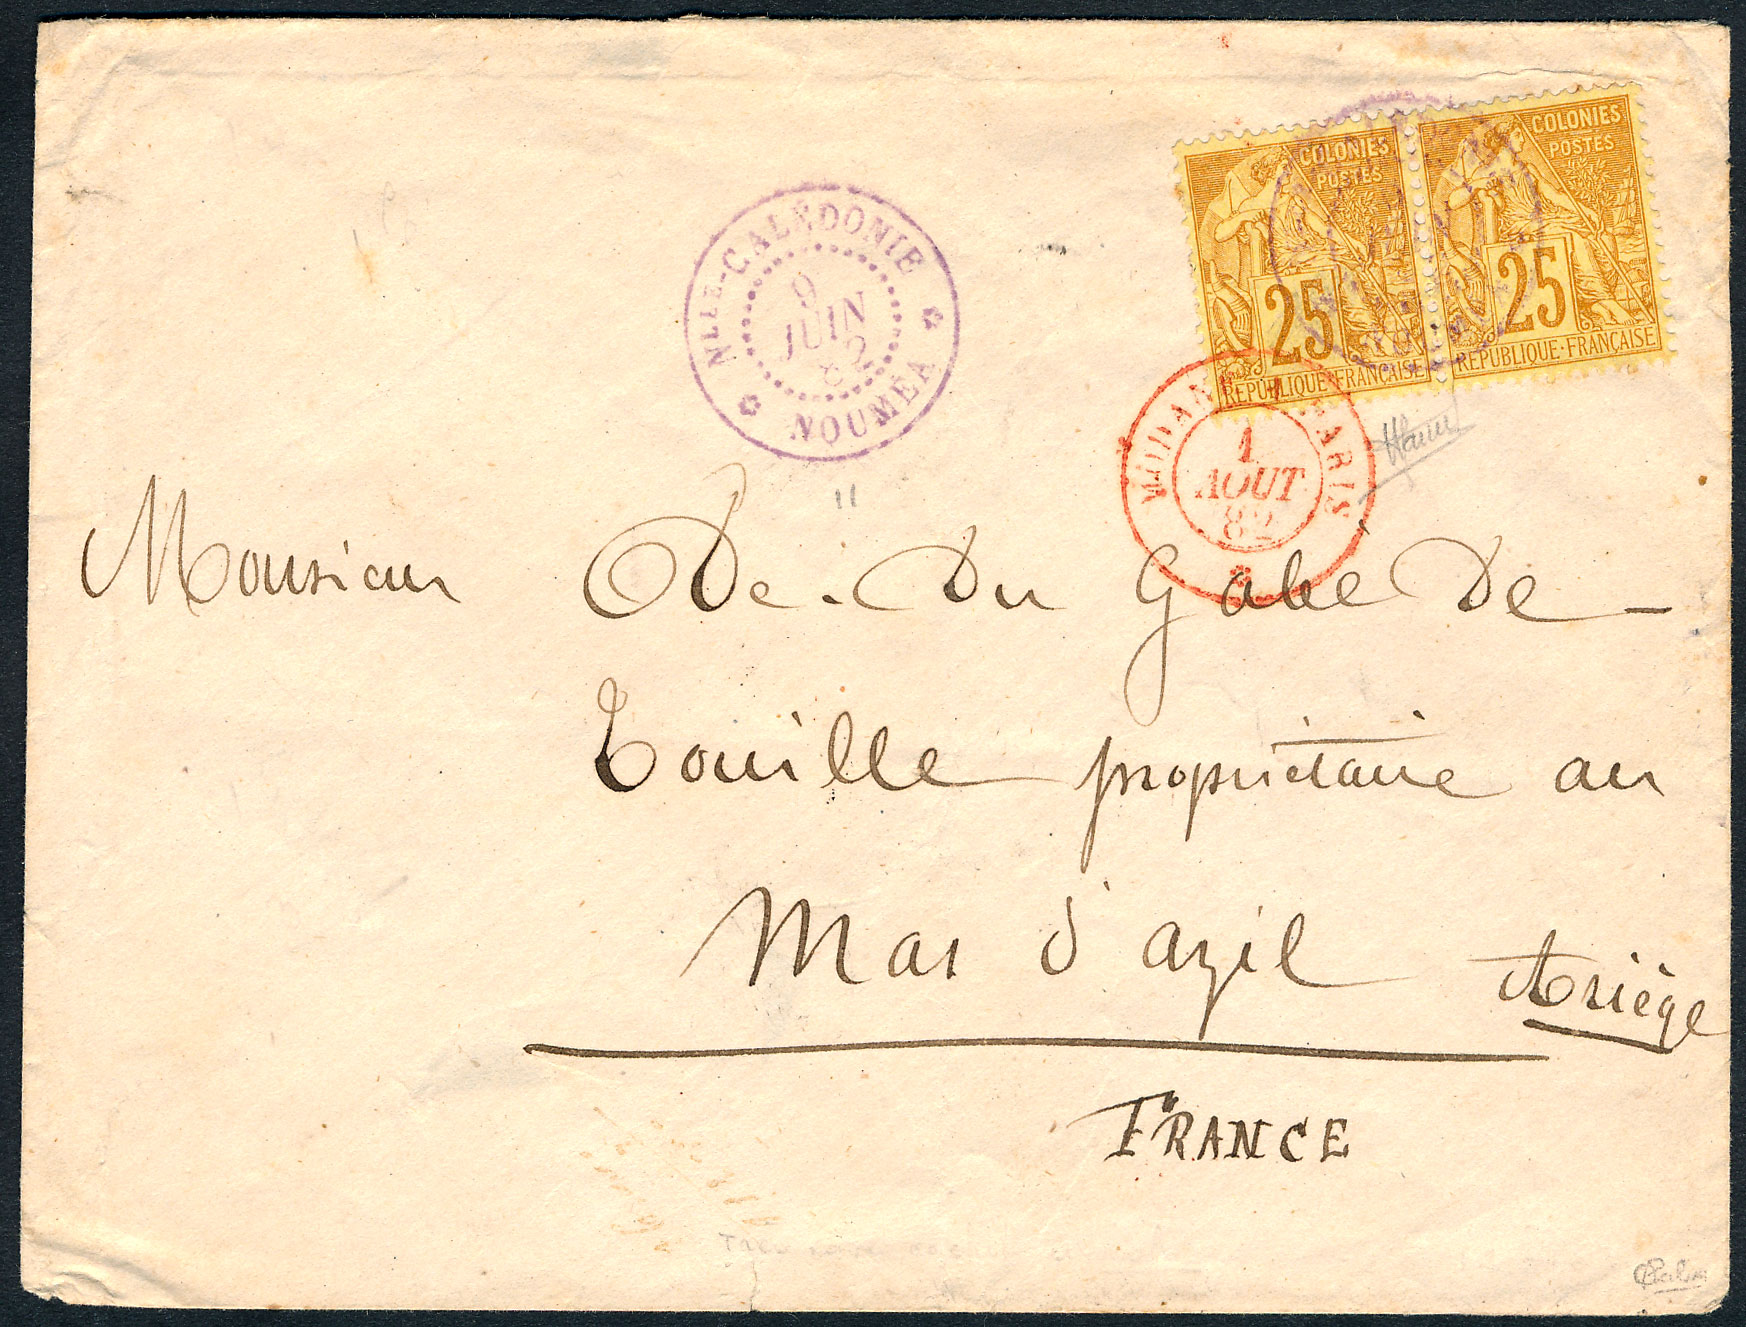 COLONIES
POSTES
25
REPUBLIQUE·FRANÇAISE
COLONIES
POSTES
25
REPUBLIQUE·FRANÇAISE
NLLE-CALÉDONIE
9
JUIN
82
NOUMÉA
MODANE PARIS
1
AOUT
82
11
Monsieur De. Du Gabe De-
Touille propriétaire au
Mas d'azil Ariège
FRANCE